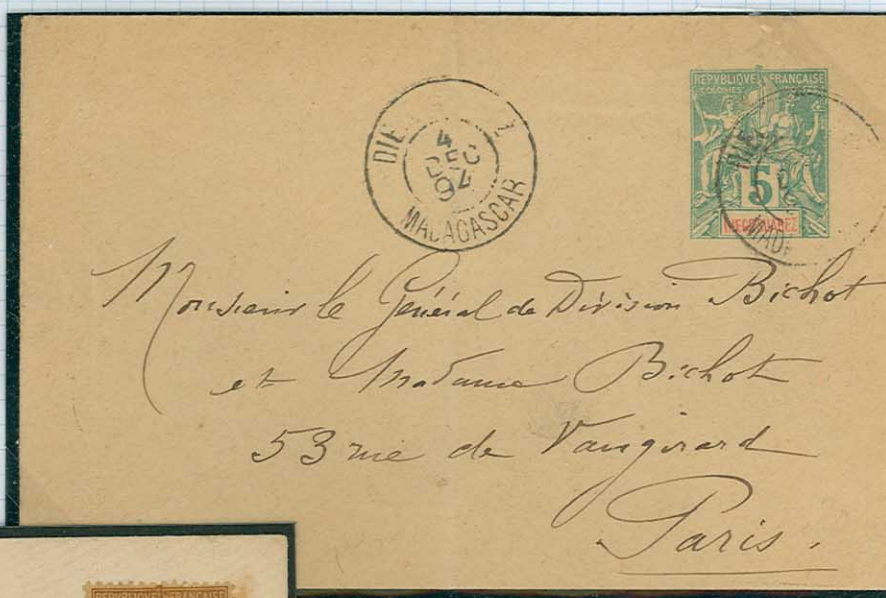 DIE Z
4
DEC
94
MADAGASCAR
REPVBLIQVE FRANÇAISE
COLONIES
5
DIEGO-SUAREZ
DIE
MAD
Monsieur le Général de Division Bichot
et Madame Bichot
53 rue de Vaugirard
Paris.
REPVBLIQVE FRANÇAISE